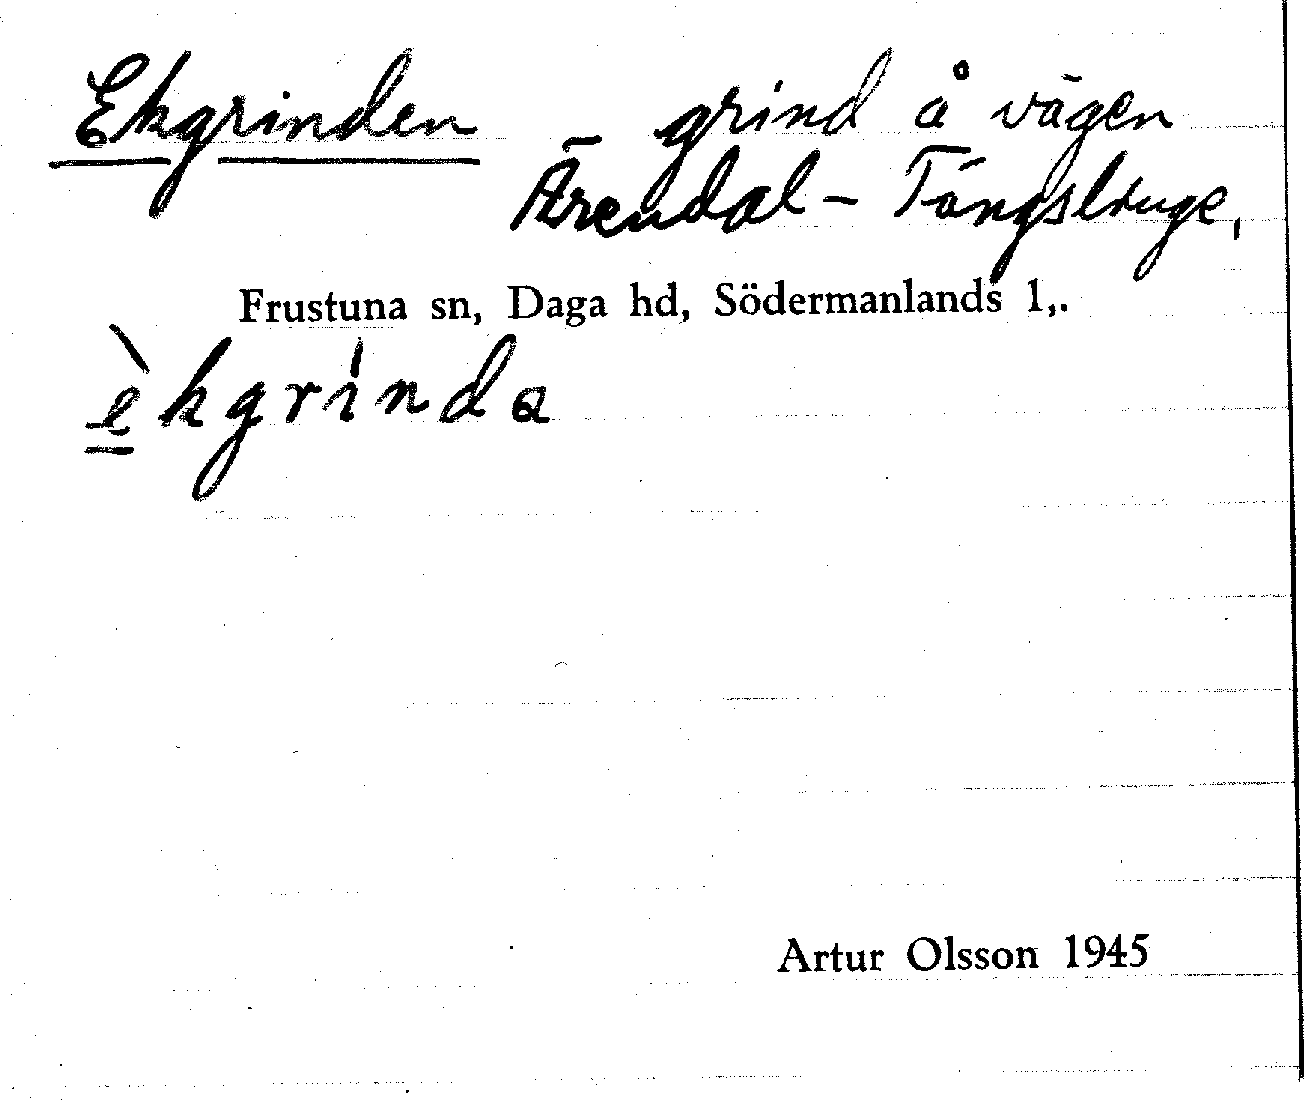 Ekgrinden – grind å vägen
Ärendal – Tängsltuge,
Frustuna sn, Daga hd, Södermanlands l,.
èkgrinda
Artur Olsson 1945